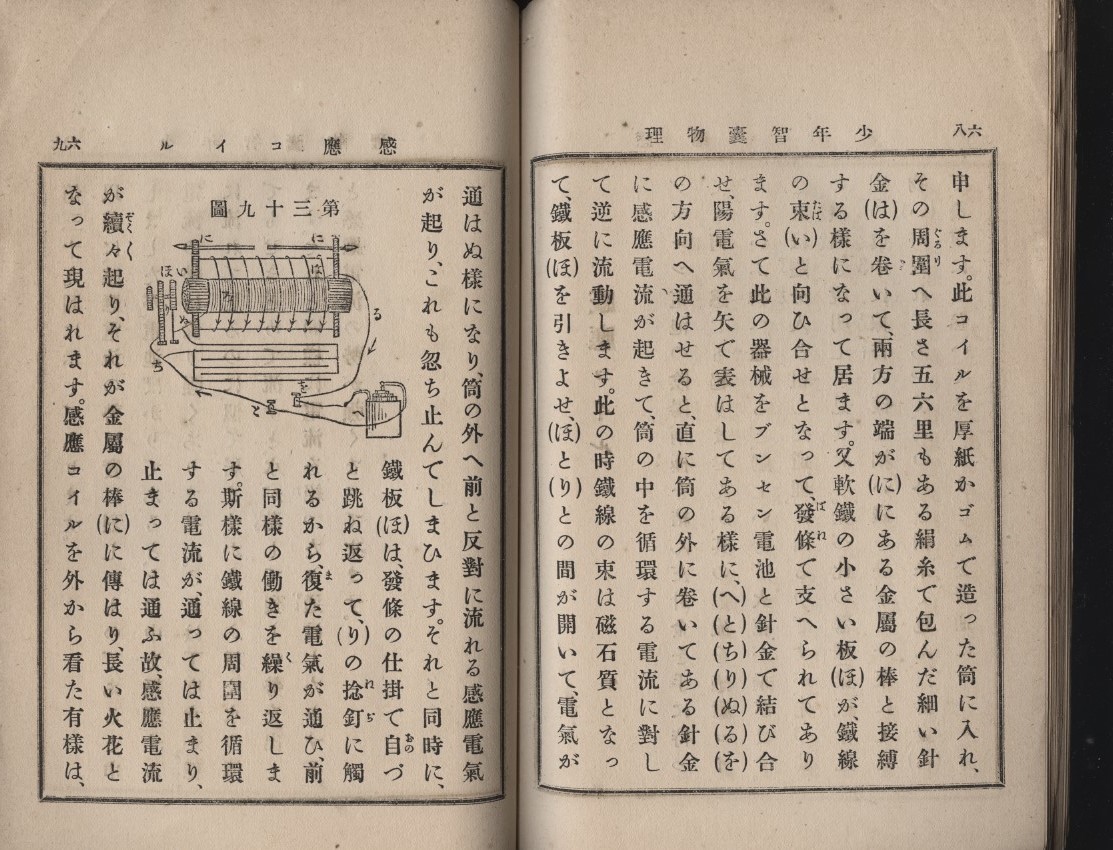 六八
少年智囊物理
申します。此コイルを厚紙かゴムで造った筒に入れ、
その周圍へ長さ五六里もある絹糸で包んだ細い針
ぐるり
金(は)を巻いて、兩方の端が(に)にある金屬の棒と接縛
する樣になって居ます。又軟鐵の小さい板(ほ)が、鐵線
の束(い)と向ひ合せとなって、發條で支へられてあり
たば
ばれ
ます。さて此の器械をブンセン電池と針金で結び合
せ、陽電氣を矢で表はしてある樣に、(へ)(と)(ち)(り)(ぬ)(る)(を)
の方向へ通はせると、直に筒の外に巻いてある針金
に感應電流が起きて、筒の中を循環する電流に對し
て逆に流動します。此の時鐵線の束は磁石質となっ
て、鐵板(ほ)を引きよせ、(ほ)と(り)との間が開いて、電氣が
六九
感應コイル
通はぬ樣になり、筒の外へ前と反對に流れる感應電氣
が起り、これも忽ち止んでしまひます。それと同時に、
第三十九圖
に
に
は
ほ
い
ろ
り
ぬ
る
ち
を
と
へ
鐵板(ほ)は、發條の仕掛で自づ
おの
と跳ね返って、(り)の捻釘に觸
れぢ
れるから、復た電氣が通ひ、前
ま
と同樣の働きを繰り返しま
く
す。斯樣に鐵線の周圍を循環
する電流が、通っては止まり、
止まっては通ふ故、感應電流
が續々起り、それが金屬の棒(に)に傳はり、長い火花と
ぞくく
なって現はれます。感應コイルを外から看た有樣は、